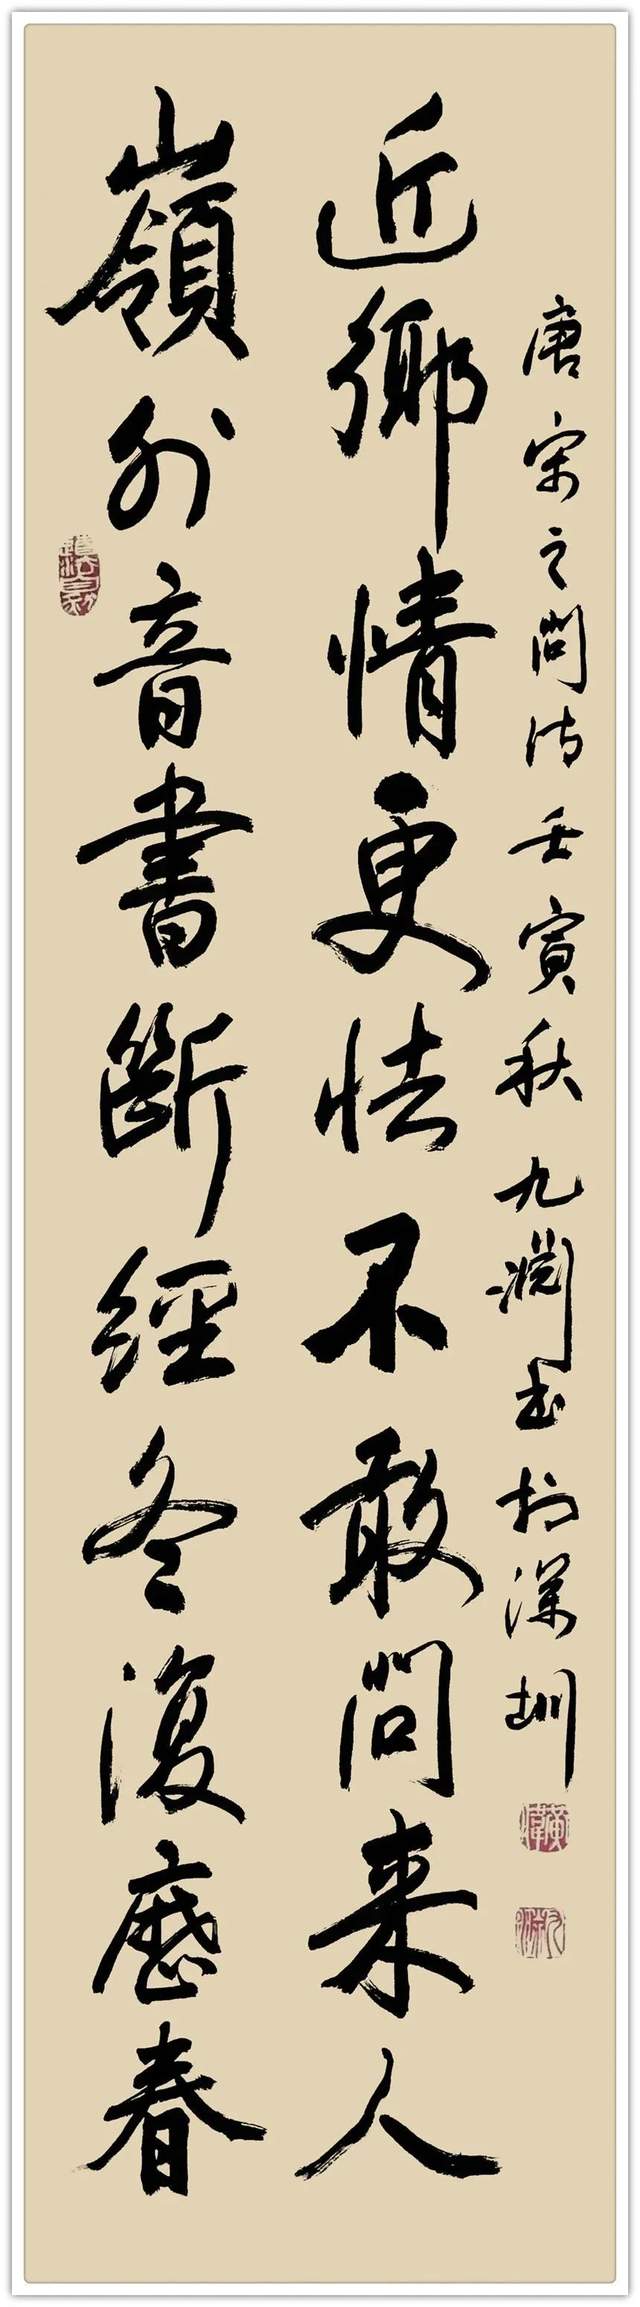 嶺外音書斷經冬復歷春
近鄉情更怯不敢問来人
唐宋之問詩壬寅秋九淵書於深圳
九淵